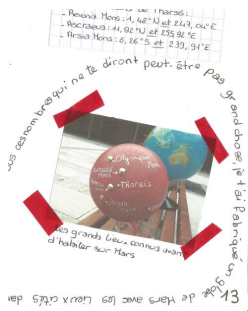 de Tharsis:
- Pavonis Mons : 1,48°N et 247,04°E
- Ascraeus : 11,92°N et 255,92°E
- Arsia Mons : 8,26°S et 239,91°E
ces nombres qui ne te diront peut-être pas grand chose, je t'ai fabriqué un globe de Mars avec les lieux cités
Olympus
Mons
Tharsis
les grands lieux connus avant
d'habiter sur Mars
13